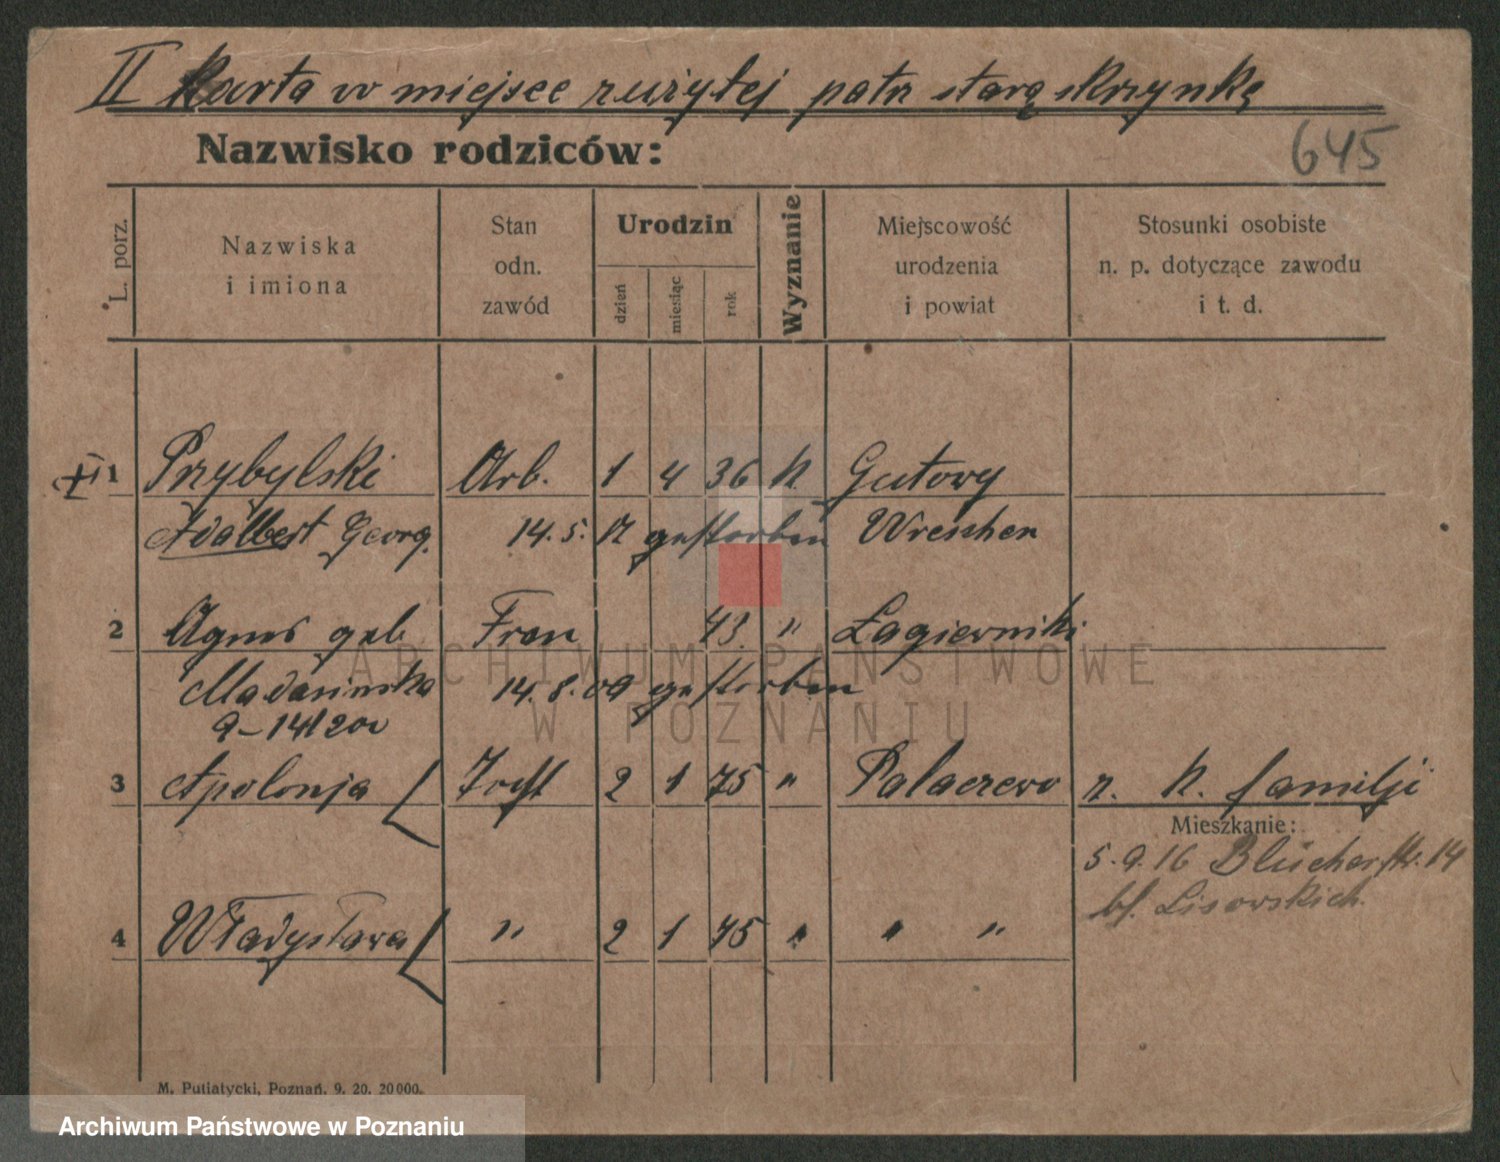 II Karta w miejsce zużytej patrz starą skrzynkę
645
Nazwisko rodziców:
L. porz.
Nazwiska
i imiona
Stan
odn.
zawód
Urodzin
dzień
miesiąc
rok
Wyznanie
Miejscowość
urodzenia
i powiat
Stosunki osobiste
n. p. dotyczące zawodu
i t. d.
1 Przybylski Arb. 1 4 36 k. Gutowy
Adalbert Georg. 14. 5. 12 gestorben Wreschen
2 Agnes geb. Frau 43. " Łagiewniki
14. 8. 09 gestorben
3 Apolonja Tocht 2 1 75 " Palaczewo r. k. familji
Mieszkanie:
5. 9. 16 Blücherstr. 14
bf. Lisowskich.
4 Władysława " 2 1 75 " " "
M. Putiatycki, Poznań. 9. 20. 20000.
ARCHIWUM PAŃSTWOWE
W POZNANIU
Archiwum Państwowe w Poznaniu